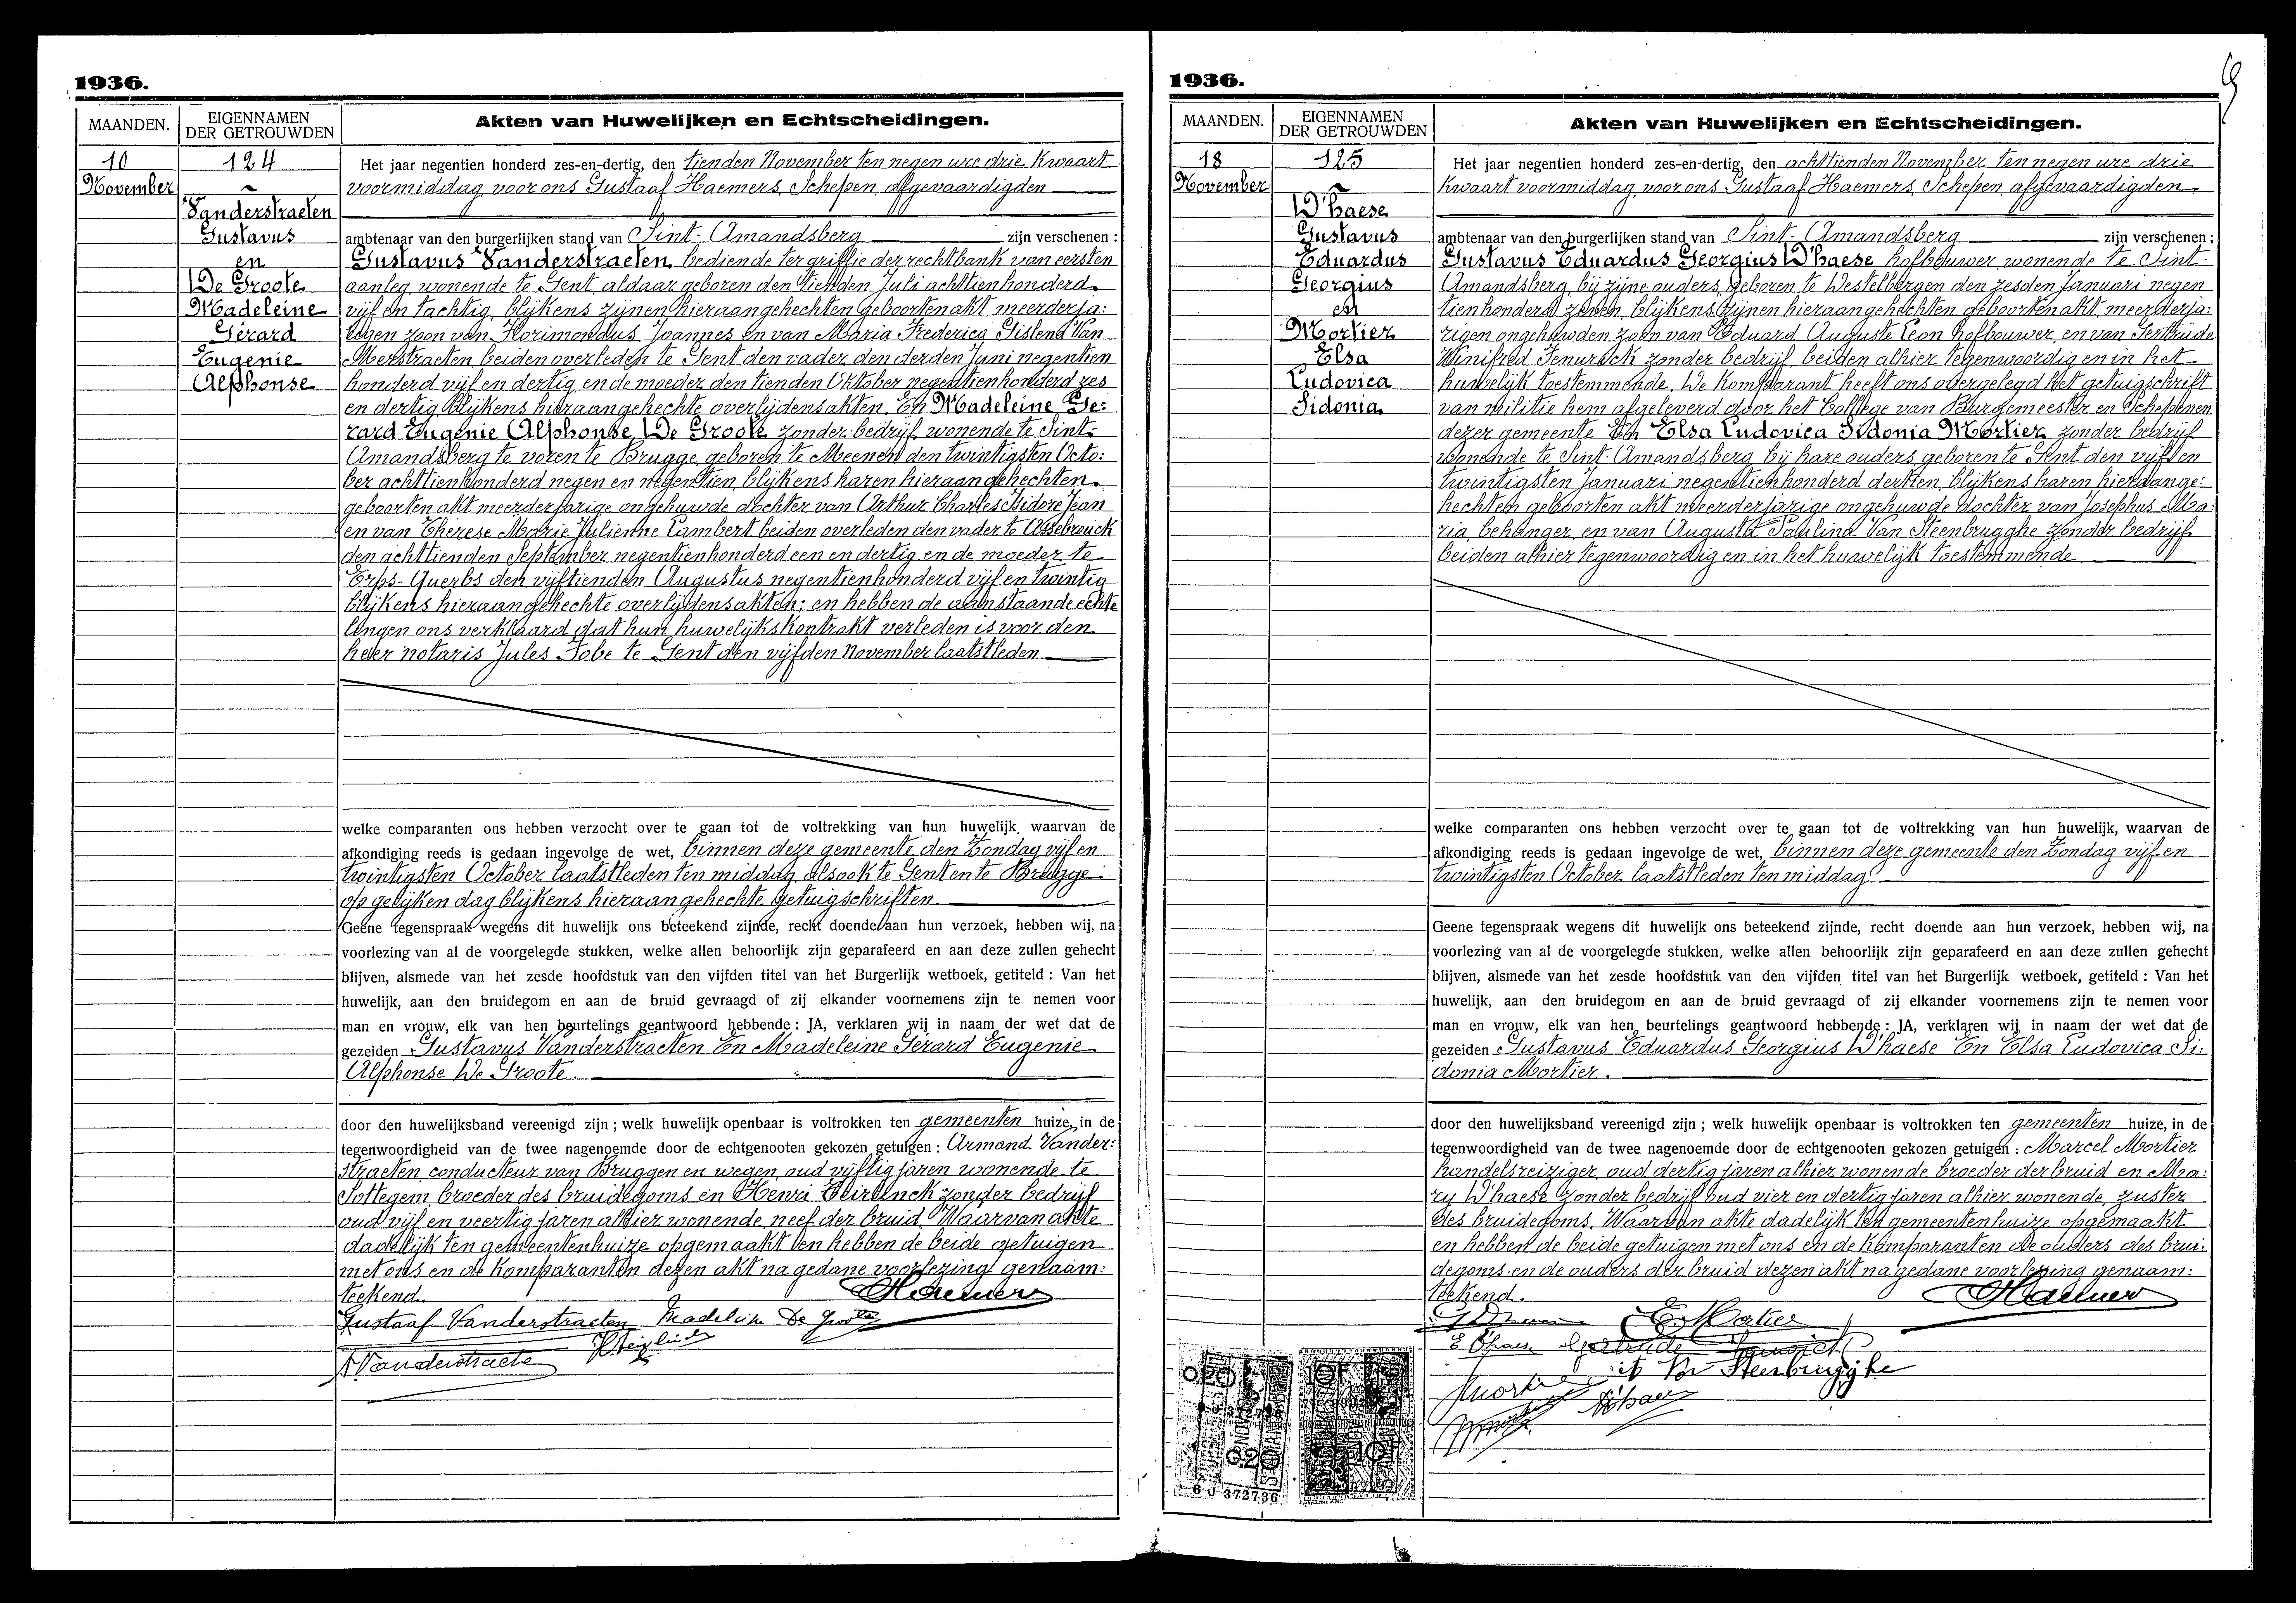 1936.
MAANDEN.
EIGENNAMEN
DER GETROUWDEN
Akten van Huwelijken en Echtscheidingen.
10
November
124
Vanderstraeten
Gustavus
en
De Groote
Madeleine
Gérard
Eugenie
Alphonse
Het jaar negentien honderd zes-en-dertig, den tienden November ten negen ure drie kwaart
voormiddag, voor ons Gustaaf Haemers, Schepen, afgevaardigden
ambtenaar van den burgerlijken stand van Sint-Amandsberg zijn verschenen :
Gustavus Vanderstraeten, bediende ter griffie der rechtbank van eersten
aanleg, wonende te Gent, aldaar geboren den tienden Juli achttienhonderd
vijf en tachtig, blijkens zijnen hieraangehechten geboortenakt, meerderja:
rigen zoon van Florimondus Joannes en van Maria Frederica Gislena Van
Meerstraeten, beiden overleden te Gent den vader den derden Juni negentien
honderd vijf en dertig en de moeder den tienden Oktober negentienhonderd zes
en dertig blijkens hieraangehechte overlijdensakten. En Madeleine Ge:
rard Eugenie Alphonse De Groote, zonder bedrijf, wonende te Sint-
Amandsberg te voren te Brugge, geboren te Meenen den twintigsten Octo:
ber achttienhonderd negen en negentien, blijkens haren hieraangehechten
geboorten akt meerderjarige ongehuwde dochter van Arthur Charles Isidore Jean
en van Thérèse Marie Julienne Lambert beiden overleden den vader te Assebrouck
den achttienden September negentienhonderd een en dertig en de moeder te
Erps-Querbs den vijftienden Augustus negentienhonderd vijf en twintig
blijkens hieraangehechte overlijdensakten; en hebben de aanstaande echte
lingen ons verklaard dat hun huwelijkskontrakt verleden is voor den
heer notaris Jules Fobe te Gent den vijfden november laatstleden
welke comparanten ons hebben verzocht over te gaan tot de voltrekking van hun huwelijk, waarvan de
afkondiging reeds is gedaan ingevolge de wet, binnen deze gemeente den Zondag vijf en
twintigsten October laatstleden ten middag alsook te Gent en te Brugge
op gelijken dag blijkens hieraangehechte getuigschriften.
Geene tegenspraak wegens dit huwelijk ons beteekend zijnde, recht doende aan hun verzoek, hebben wij, na
voorlezing van al de voorgelegde stukken, welke allen behoorlijk zijn geparafeerd en aan deze zullen gehecht
blijven, alsmede van het zesde hoofdstuk van den vijfden titel van het Burgerlijk wetboek, getiteld : Van het
huwelijk, aan den bruidegom en aan de bruid gevraagd of zij elkander voornemens zijn te nemen voor
man en vrouw, elk van hen beurtelings geantwoord hebbende : JA, verklaren wij in naam der wet dat de
gezeiden Gustavus Vanderstraeten En Madeleine Gérard Eugenie
Alphonse De Groote.
door den huwelijksband vereenigd zijn ; welk huwelijk openbaar is voltrokken ten gemeenten huize, in de
tegenwoordigheid van de twee nagenoemde door de echtgenooten gekozen getuigen : Armand Vander:
straeten conducteur van Bruggen en wegen, oud vijftig jaren wonende te
Sottegem broeder des bruidegoms en Henri Teirlinck zonder bedrijf
oud vijf en veertig jaren alhier wonende, neef der bruid. Waarvan akte
dadelijk ten gemeentenhuize opgemaakt en hebben de beide getuigen
met ons en de komparanten dezen akt na gedane voorlezing genaam:
teekend.
Haemers
Gustaaf Vanderstraeten Madeleine De Groote
AVanderstraete
1936.
MAANDEN.
EIGENNAMEN
DER GETROUWDEN
Akten van Huwelijken en Echtscheidingen.
18
November
125
D'haese
Gustavus
Eduardus
Georgius
en
Mortier
Elsa
Ludovica
Sidonia
Het jaar negentien honderd zes-en-dertig, den achttienden November ten negen ure drie
kwaart voormiddag, voor ons Gustaaf Haemers, Schepen, afgevaardigden
ambtenaar van den burgerlijken stand van Sint-Amandsberg zijn verschenen :
Gustavus Eduardus Georgius D'haese hofbouwer, wonende te Sint-
Amandsberg, bij zijne ouders, geboren te Destelbergen den zesden Januari negen
tienhonderd zeven, blijkens zijnen hieraangehechten geboortenakt, meerderja:
rigen ongehuwden zoon van Eduard Auguste Leon hofbouwer, en van Gertrude
Winifred Fenwick zonder bedrijf, beiden alhier tegenwoordig en in het
huwelijk toestemmende. De komparant heeft ons overgelegd het getuigschrift
van militie hem afgeleverd door het College van Burgemeester en Schepenen
dezer gemeente En Elsa Ludovica Sidonia Mortier, zonder bedrijf
wonende te Sint-Amandsberg bij hare ouders, geboren te Gent den vijf en
twintigsten Januari negentienhonderd dertien, blijkens haren hieraange:
hechten geboorten akt meerderjarige ongehuwde dochter van Josephus Ma:
ria, behanger, en van Augusta Paulina Van Steenbrugghe zonder bedrijf
beiden alhier tegenwoordig en in het huwelijk toestemmende.
welke comparanten ons hebben verzocht over te gaan tot de voltrekking van hun huwelijk, waarvan de
afkondiging reeds is gedaan ingevolge de wet, binnen deze gemeente den Zondag vijf en
twintigsten October laatstleden ten middag
Geene tegenspraak wegens dit huwelijk ons beteekend zijnde, recht doende aan hun verzoek, hebben wij, na
voorlezing van al de voorgelegde stukken, welke allen behoorlijk zijn geparafeerd en aan deze zullen gehecht
blijven, alsmede van het zesde hoofdstuk van den vijfden titel van het Burgerlijk wetboek, getiteld : Van het
huwelijk, aan den bruidegom en aan de bruid gevraagd of zij elkander voornemens zijn te nemen voor
man en vrouw, elk van hen beurtelings geantwoord hebbende : JA, verklaren wij in naam der wet dat de
gezeiden Gustavus Eduardus Georgius D'haese En Elsa Ludovica Si:
donia Mortier.
door den huwelijksband vereenigd zijn ; welk huwelijk openbaar is voltrokken ten gemeenten huize, in de
tegenwoordigheid van de twee nagenoemde door de echtgenooten gekozen getuigen : Marcel Mortier
handelsreiziger, oud dertig jaren alhier wonende broeder der bruid en Ma:
ry D'haese zonder bedrijf oud vier en dertig jaren alhier wonende, zuster
des bruidegoms. Waarvan akte dadelijk ten gemeentenhuize opgemaakt
en hebben de beide getuigen met ons en de komparanten de ouders des brui:
degoms en de ouders der bruid dezen akt na gedane voorlezing genaam:
teekend.
Haemers
E. Mortier
E D'haese Gertrude Fenwick
Van Steenbrugghe
Mortier
D'haese
0.20
10F
0.20
10F
6 J 372736